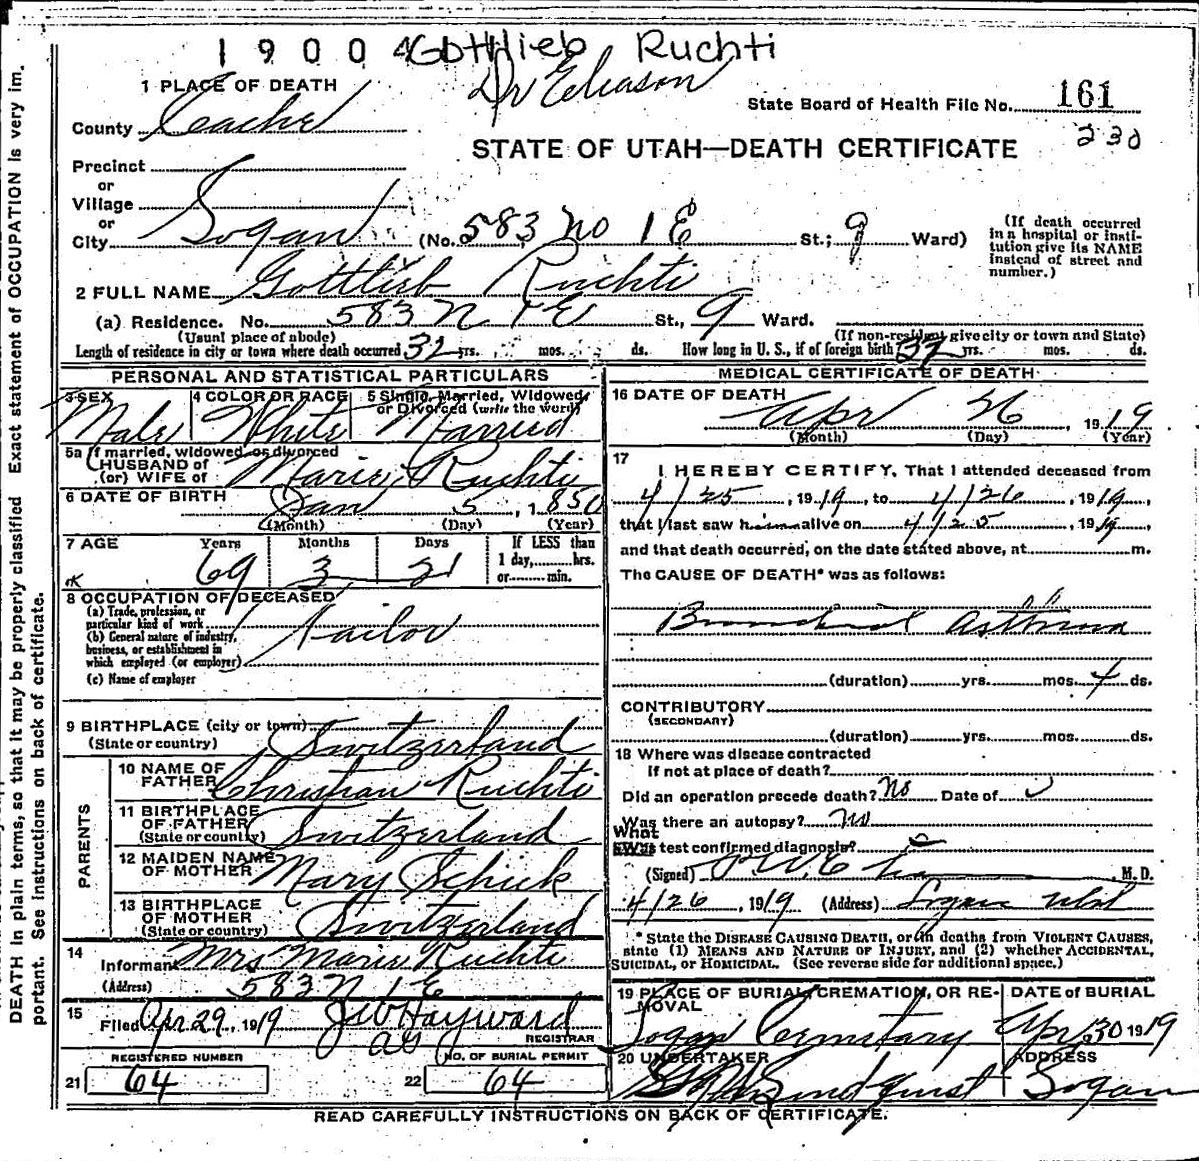 1 9 0 0 4 Gottlieb Ruchti
Dr Eliason
1 PLACE OF DEATH
State Board of Health File No. 161
230
County Cache
STATE OF UTAH—DEATH CERTIFICATE
Precinct
or
Village
or
City Logan (No. 583 No 1 E St.; 9 Ward)
(If death occurred in a hospital or institution give its NAME instead of street and number.)
2 FULL NAME Gottlieb Ruchti
(a) Residence. No. 583 N 1 E St., 9 Ward.
(Usual place of abode) (If non-resident give city or town and State)
Length of residence in city or town where death occurred 32 yrs. mos. ds. How long in U. S., if of foreign birth 32 yrs. mos. ds.
PERSONAL AND STATISTICAL PARTICULARS
3 SEX 4 COLOR OR RACE 5 Single, Married, Widowed, or Divorced (write the word)
Male White Married
5a If married, widowed, or divorced
HUSBAND of
(or) WIFE of Marie Ruchti
6 DATE OF BIRTH Jan 5, 1850
(Month) (Day) (Year)
7 AGE Years Months Days If LESS than
1 day,........hrs.
or........min.
69 3 21
8 OCCUPATION OF DECEASED
(a) Trade, profession, or
particular kind of work
(b) General nature of industry,
business, or establishment in
which employed (or employer)
Tailor
(c) Name of employer
9 BIRTHPLACE (city or town)
(State or country) Switzerland
PARENTS
10 NAME OF
FATHER Christian Ruchti
11 BIRTHPLACE
OF FATHER
(State or country) Switzerland
12 MAIDEN NAME
OF MOTHER Mary Schick
13 BIRTHPLACE
OF MOTHER
(State or country) Switzerland
14
Informant Mrs Marie Ruchti
(Address) 583 N 1 E
15
Filed Apr 29, 1919
Hayward
REGISTRAR
REGISTERED NUMBER (NO. OF BURIAL PERMIT
21 64 22 64
MEDICAL CERTIFICATE OF DEATH
16 DATE OF DEATH
Apr 26 1919
(Month) (Day) (Year)
17
I HEREBY CERTIFY, That I attended deceased from
4/25, 1919, to 4/26, 1919,
that I last saw him alive on 4/25, 1919,
and that death occurred, on the date stated above, at m.
The CAUSE OF DEATH* was as follows:
Bronchial Asthma
(duration) yrs. mos. 4 ds.
CONTRIBUTORY
(SECONDARY)
(duration) yrs. mos. ds.
18 Where was disease contracted
If not at place of death?
Did an operation precede death? No Date of
Was there an autopsy? No
What
test confirmed diagnosis?
(Signed) , M. D.
4/26, 1919 (Address) Logan Utah
* State the DISEASE CAUSING DEATH, or in deaths from VIOLENT CAUSES,
state (1) MEANS AND NATURE OF INJURY, and (2) whether ACCIDENTAL,
SUICIDAL, or HOMICIDAL. (See reverse side for additional space.)
19 PLACE OF BURIAL, CREMATION, OR RE-
MOVAL
DATE of BURIAL
Logan Cemetary Apr 30 1919
20 UNDERTAKER ADDRESS
Lindquist Logan
READ CAREFULLY INSTRUCTIONS ON BACK OF CERTIFICATE.
DEATH in plain terms, so that it may be properly classified Exact statement of OCCUPATION is very im.
portant. See instructions on back of certificate.